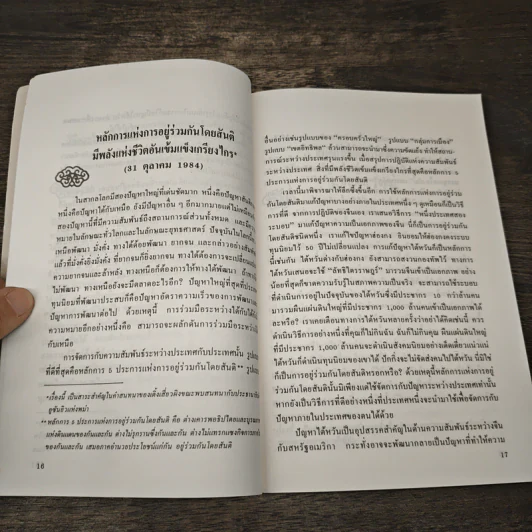 หลักการแห่งการอยู่ร่วมกันโดยสันติ
มีพลังแห่งชีวิตอันเข้มแข็งเกรียงไกร*
(31 ตุลาคม 1984)
ในสากลโลกมีสองปัญหาใหญ่ที่เด่นชัดมาก หนึ่งคือปัญหาสันติ
หนึ่งคือปัญหาใต้กับเหนือ ยังมีปัญหาอื่น ๆ อีกมากมายแต่ไม่เหมือน
สองปัญหานี้ที่มีความสัมพันธ์ถึงสถานการณ์ส่วนทั้งหมด และมี
หมายในลักษณะทั่วโลกและในลักษณะยุทธศาสตร์ ปัจจุบันในโลก
เหนือพัฒนา มั่งคั่ง ทางใต้ด้อยพัฒนา ยากจน และกล่าวอย่างสัมพัทธ์
แล้วที่มั่งคั่งยิ่งมั่งคั่ง ที่ยากจนก็ยิ่งยากจน ทางใต้ต้องการจะเปลี่ยน
ความยากจนและล้าหลัง ทางเหนือก็ต้องการให้ทางใต้พัฒนา ถ้าทาง
ไม่พัฒนา ทางเหนือยังจะมีตลาดอะไรอีก? ปัญหาใหญ่ที่สุดที่ประเทศ
ทุนนิยมที่พัฒนาประสบก็คือปัญหาอัตราความเร็วของการพัฒนา
ปัญหาการพัฒนาต่อไป ด้วยเหตุนี้ การร่วมมือระหว่างใต้กับใต้
ความหมายอีกอย่างหนึ่งคือ สามารถจะผลักดันการร่วมมือระหว่าง
กับเหนือ
การจัดการกับความสัมพันธ์ระหว่างประเทศกับประเทศนั้น รูปแบบ
ที่ดีที่สุดคือหลักการ 5 ประการแห่งการอยู่ร่วมกันโดยสันติ** รูปแบบ
*เรื่องนี้ เป็นสาระสำคัญในคำสนทนาของเติ้งเสี่ยวผิงขณะพบสนทนากับประธานาธิบดี
อูซันยิวแห่งพม่า
**หลักการ 5 ประการแห่งการอยู่ร่วมกันโดยสันติ คือ ต่างเคารพอธิปไตยและบูรณภาพ
แห่งดินแดนของกันและกัน ต่างไม่รุกรานซึ่งกันและกัน ต่างไม่แทรกแซงกิจการภายใน
ของกันและกัน เสมอภาคอำนวยประโยชน์แก่กัน อยู่ร่วมกันโดยสันติ
16
อื่นอย่างเช่นรูปแบบของ "ครอบครัวใหญ่" รูปแบบ "กลุ่มการเมือง"
รูปแบบ "เขตอิทธิพล" ล้วนสามารถจะนำมาซึ่งความขัดแย้ง ทำให้สถาน-
การณ์ระหว่างประเทศรุนแรงขึ้น เมื่อสรุปการปฏิบัติแห่งความสัมพันธ์
ระหว่างประเทศ สิ่งที่มีพลังชีวิตเข้มแข็งเกรียงไกรที่สุดคือหลักการ 5
ประการแห่งการอยู่ร่วมกันโดยสันติ
เรานี้มาพิจารณาให้ลึกซึ้งขึ้นอีก การใช้หลักการแห่งการอยู่ร่วม
กันโดยสันติมาแก้ปัญหาบางอย่างภายในประเทศหนึ่ง ๆ ดูเหมือนก็เป็นวิธี
การที่ดี จากการปฏิบัติของจีนเอง เราเสนอวิธีการ "หนึ่งประเทศสอง
ระบอบ" มาแก้ปัญหาความเป็นเอกภาพของจีน นี่ก็เป็นการอยู่ร่วมกัน
โดยสันติชนิดหนึ่ง เราแก้ไขปัญหาฮ่องกง ยินยอมให้ฮ่องกงคงระบอบ
ทุนนิยมไว้ 50 ปีไม่เปลี่ยนแปลง การแก้ปัญหาไต้หวันก็เป็นหลักการนี้
นี่เช่นกัน ไต้หวันต่างกับฮ่องกง ยังสามารถสงวนกองทัพไว้ ทางการ
ไต้หวันเสนอจะใช้ "ลัทธิไตรราษฎร์" มารวมจีนเข้าเป็นเอกภาพ อย่าง
น้อยที่สุดก็ขาดความรับรู้ในสภาพความเป็นจริง จะสามารถใช้ระบบที่
ดำเนินการอยู่ในปัจจุบันของไต้หวันซึ่งมีประชากร 10 กว่าล้านคน
มารวมผืนแผ่นดินใหญ่ที่มีประชากร 1,000 ล้านคนเข้าเป็นเอกภาพได้
ละหรือ? เราเคยเตือนทางการไต้หวันหลายครั้งว่าอย่าได้คิดเช่นนี้ ควร
ดำเนินวิธีการอย่างหนึ่งที่คุณก็ไม่กินฉัน ฉันก็ไม่กินคุณ ผืนแผ่นดินใหญ่
ที่มีประชากร 1,000 ล้านคนจะดำเนินสังคมนิยมอย่างเด็ดเดี่ยวแน่วแน่
ไต้หวันก็ดำเนินทุนนิยมของเขาได้ ปักกิ่งจะไม่จัดส่งคนไปไต้หวัน นี่มิใช่
ก็เป็นการอยู่ร่วมกันโดยสันติหรอกหรือ? ด้วยเหตุนี้หลักการแห่งการอยู่
ร่วมกันโดยสันตินั้นมิเพียงแต่ใช้จัดการกับปัญหาระหว่างประเทศเท่านั้น
หากยังเป็นวิธีการที่ดีอย่างหนึ่งที่ประเทศหนึ่งจะนำมาใช้เพื่อจัดการกับ
ปัญหาภายในประเทศของตนได้ด้วย
ปัญหาไต้หวันเป็นอุปสรรคสำคัญในด้านความสัมพันธ์ระหว่างจีน
กับสหรัฐอเมริกา กระทั่งอาจจะพัฒนากลายเป็นปัญหาที่ทำให้ความ
17